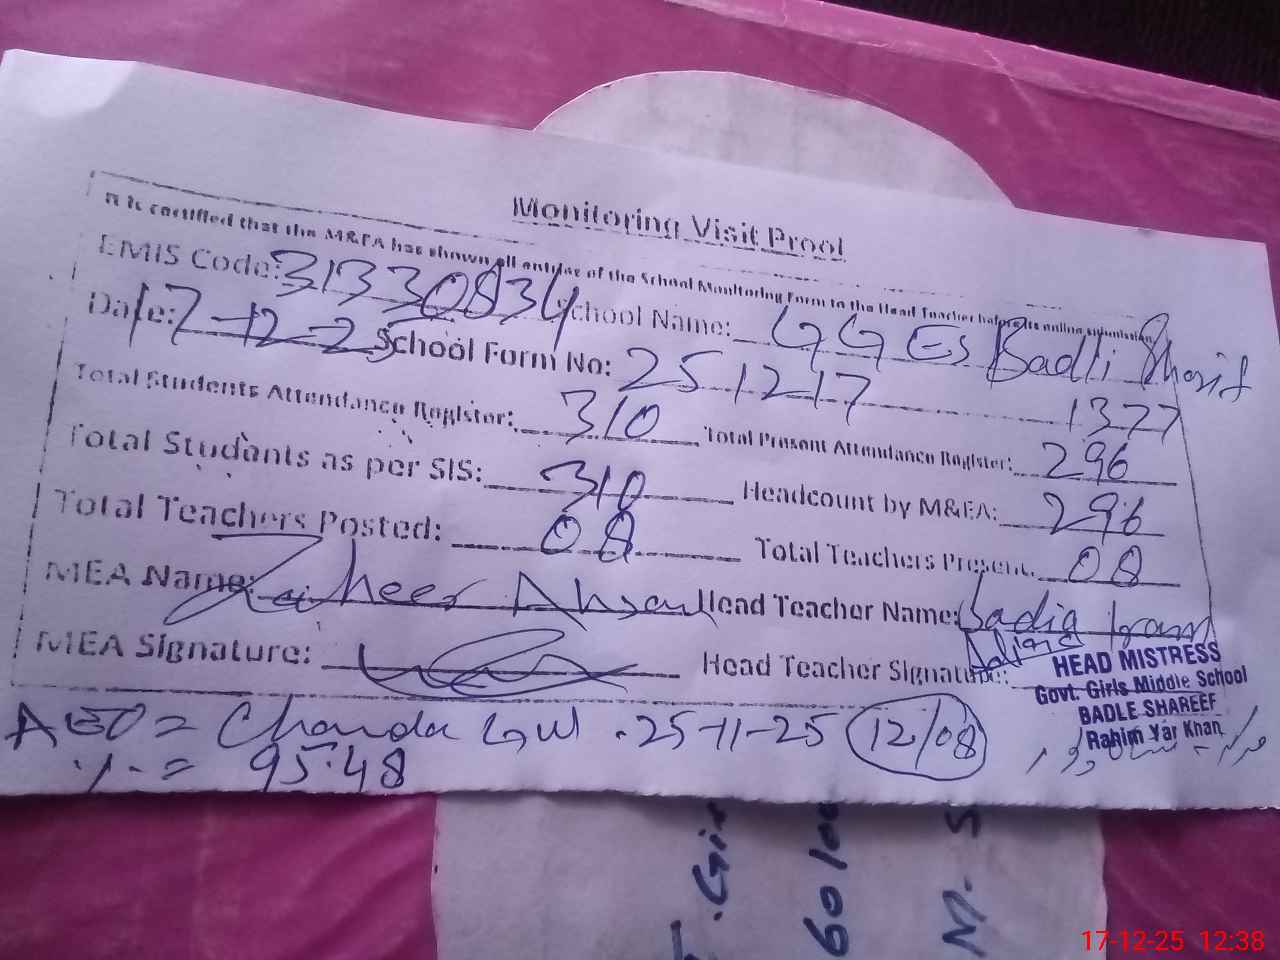 Monitoring Visit Proof
It is certified that the M&EA has shown all entries of the School Monitoring Form to the Head Teacher before its online submission
EMIS Code: 31330834 School Name: GGES Badli Sharif
Date: 17-12-25 School Form No: 25 12 17 1377
Total Students Attendance Register: 310 Total Present Attendance Register: 296
Total Students as per SIS: 310 Headcount by M&EA: 296
Total Teachers Posted: 08 Total Teachers Present: 08
MEA Name: Zaheer Ahsan Head Teacher Name: Sadia
MEA Signature: Head Teacher Signature:
HEAD MISTRESS
Govt. Girls Middle School
BADLE SHAREEF
Rahim Yar Khan
AEO = Chanda Gul . 25-11-25 12/08
%. = 95.48
60
M.
17-12-25 12:38